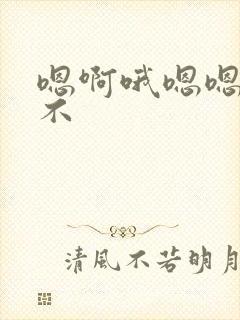 嗯啊哦嗯嗯
不
清風不若明月